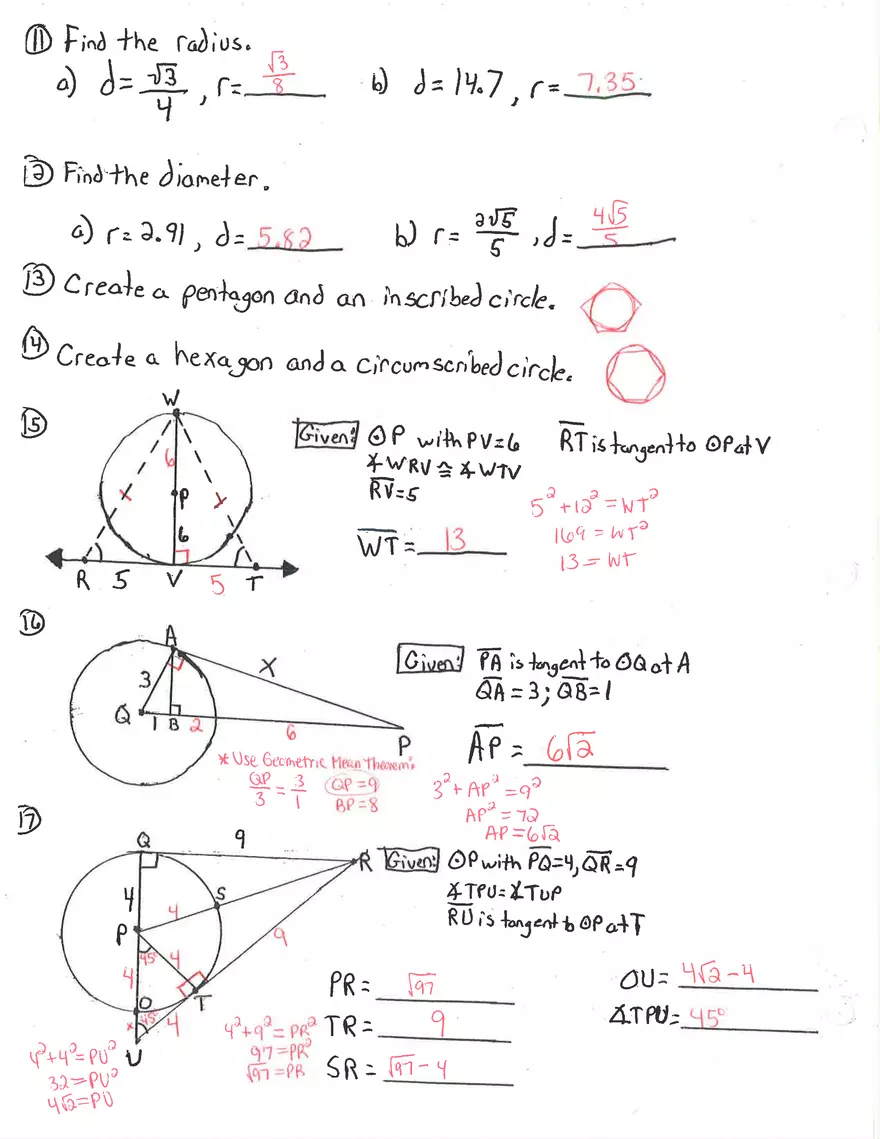 ⑪ Find the radius.
a) d= √3/4 , r= √3/8 b) d= 14.7, r= 7.35
⑫ Find the diameter.
a) r= 2.91, d= 5.82 b) r= 2√5/5 , d= 4√5/5
⑬ Create a pentagon and an inscribed circle.
⑭ Create a hexagon and a circumscribed circle.
⑮
W
6
P
6
R 5 V 5 T
Given: ⊙P with PV=6 RT is tangent to ⊙P at V
∡WRV ≅ ∡WTV
RV=5
WT= 13
5²+12²=WT²
169=WT²
13=WT
⑯
A
3 X
Q 1 B 2 6 P
Given: PA is tangent to ⊙Q at A
QA = 3; QB=1
AP = 6√2
* Use Geometric Mean Theorem:
QP/3 = 3/1 QP=9
BP=8
3²+AP²=9²
AP²=72
AP=6√2
⑰
Q 9 R
4 S
P 4
45° 4 9
4
O T
x 45° 4
U
Given: ⊙P with PQ=4, QR=9
∡TPU=∡TUP
RU is tangent to ⊙P at T
PR= √97 OU= 4√2-4
TR= 9 ∡TPU= 45°
SR= √97-4
4²+9²=PR²
97=PR²
√97=PR
4²+4²=PU²
32=PU²
4√2=PU